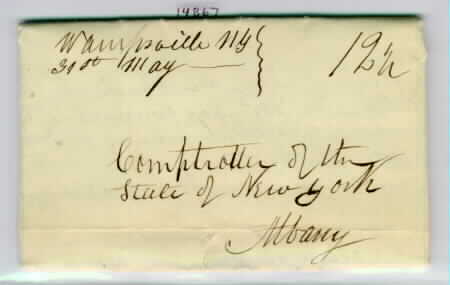 14867
Wampsville NY
31st May
12½
Comptroller of the
State of New York
Albany